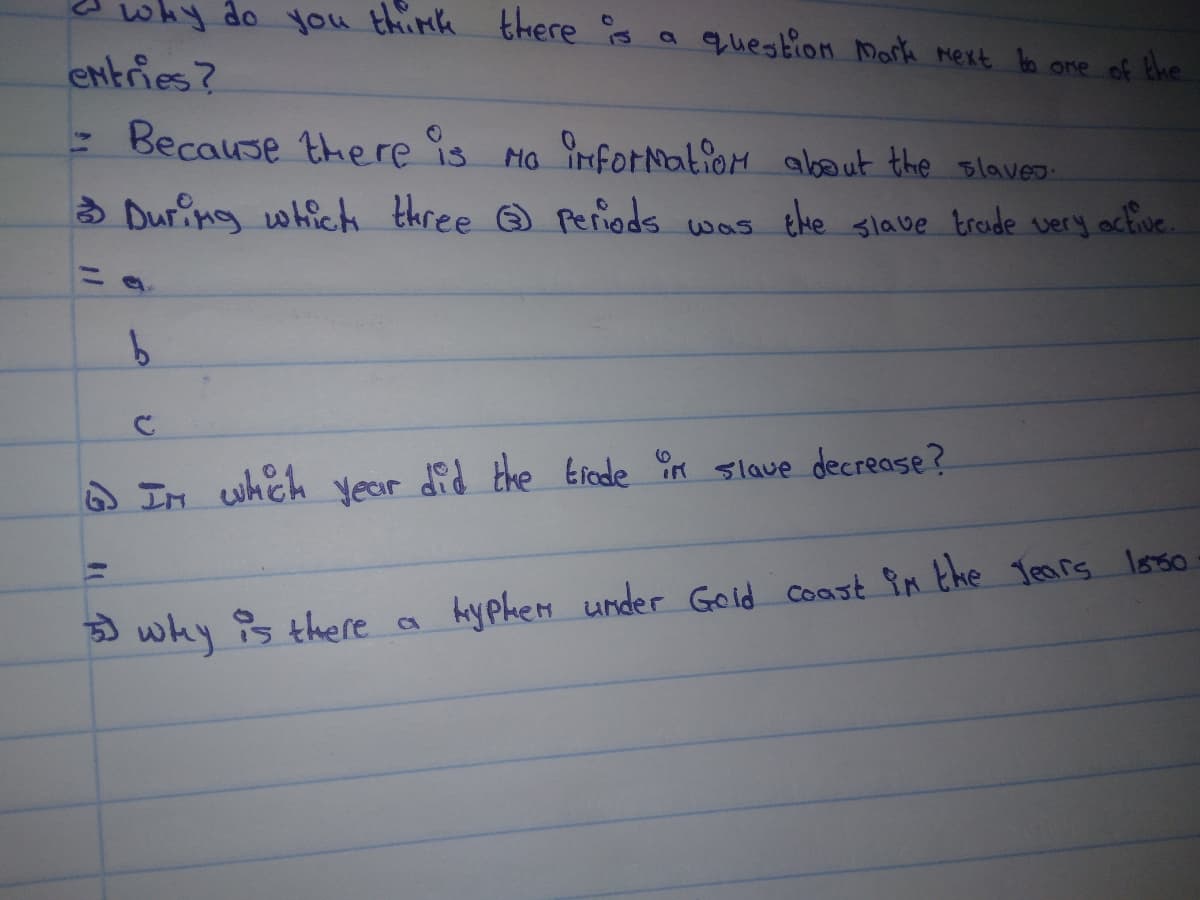 why do you think there is a question mark next to one of the
entries?
= Because there is no information about the slaves.
3) During which three (3) periods was the slave trade very active.
= a.
b
c
4) In which year did the trade in slave decrease?
=
5) why is there a hyphen under Gold coast in the years 1550